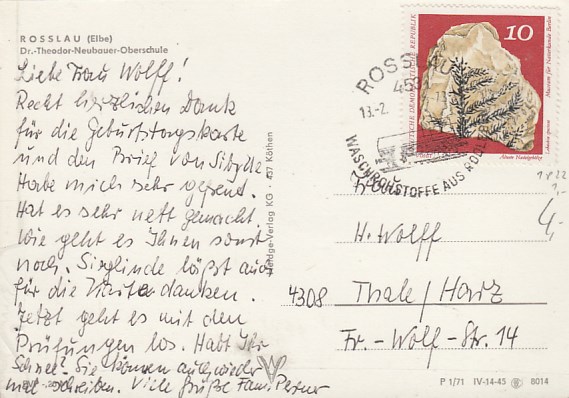 ROSSLAU (Elbe)
Dr.-Theodor-Neubauer-Oberschule
Liebe Frau Wolff!
Recht herzlichen Dank
für die Geburtstagskarte
und den Brief von Sibylle
Habe mich sehr gefreut.
Hat es sehr nett gemacht
Wie geht es Ihnen sonst
noch. Sieglinde läßt auch
für die Karte danken.
Jetzt geht es mit den
Prüfungen los. Habt Ihr
Schnee? Sie können auch wieder
mal schreiben. Viele Grüße Fam.
Heldge-Verlag KG · 437 Köthen
ROSSLAU
4531
13.-2.
WASCHROHSTOFFE AUS RODLEBEN
10
DEUTSCHE DEMOKRATISCHE REPUBLIK
Museum für Naturkunde Berlin
H. Wolff
4308 Thale/Harz
Fr.-Wolf-Str. 14
4,-
P 1/71 IV-14-45 8014